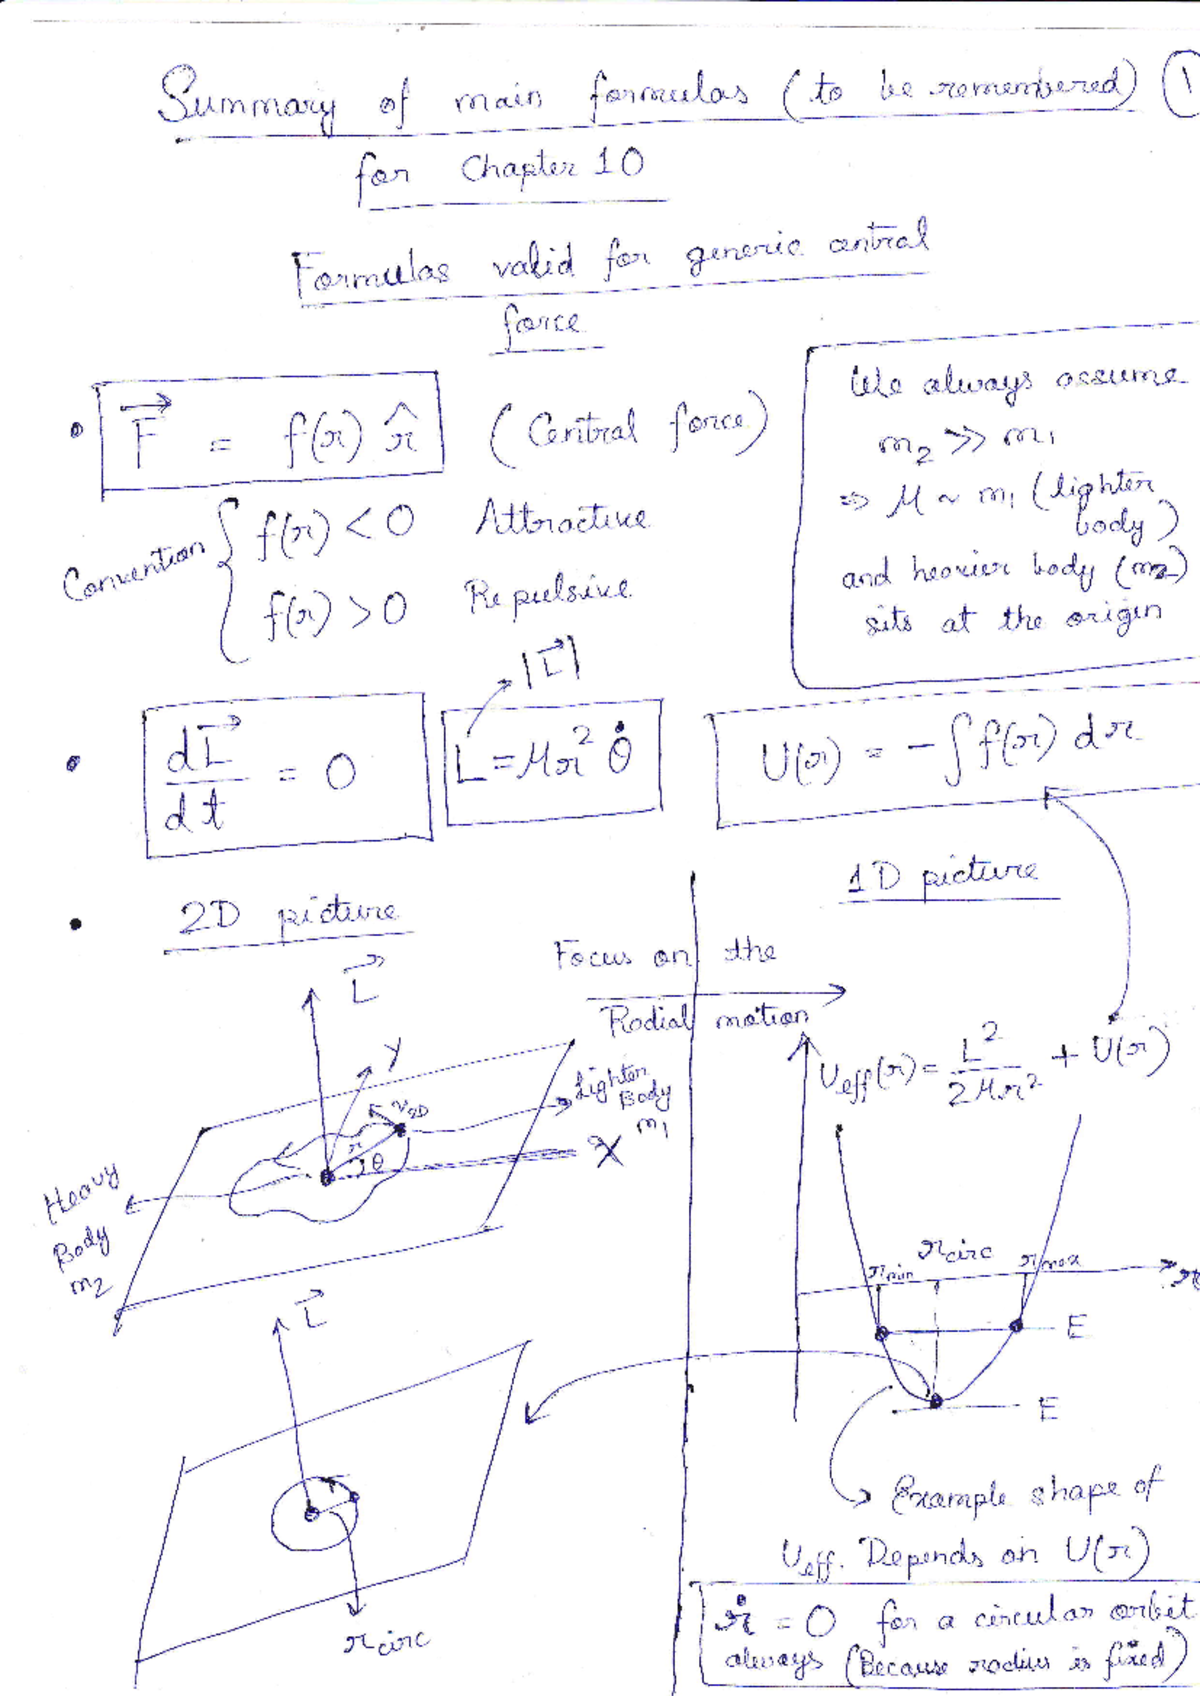 Summary of main formulas (to be remembered) 1
for Chapter 10
Formulas valid for generic central
force
• F⃗ = f(r) r̂ (Central force)
Convention { f(r) < 0 Attractive
f(r) > 0 Repulsive
We always assume
m₂ >> m₁
⇒ μ ~ m₁ (lighter
body)
and heavier body (m₂)
sits at the origin
|L⃗|
• dL⃗/dt = 0
L = μr² θ̇
U(r) = -∫f(r) dr
• 2D picture
1D picture
Focus on the
Radial motion
L⃗
Y
v₂D
r
θ
X
Lighter
Body
m₁
Heavy
Body
m₂
U_eff(r) = L²/2μr² + U(r)
r_min r_circ r_max r
E
E
L⃗
r_circ
Example shape of
U_eff. Depends on U(r)
ṙ = 0 for a circular orbit
always (Because radius is fixed)